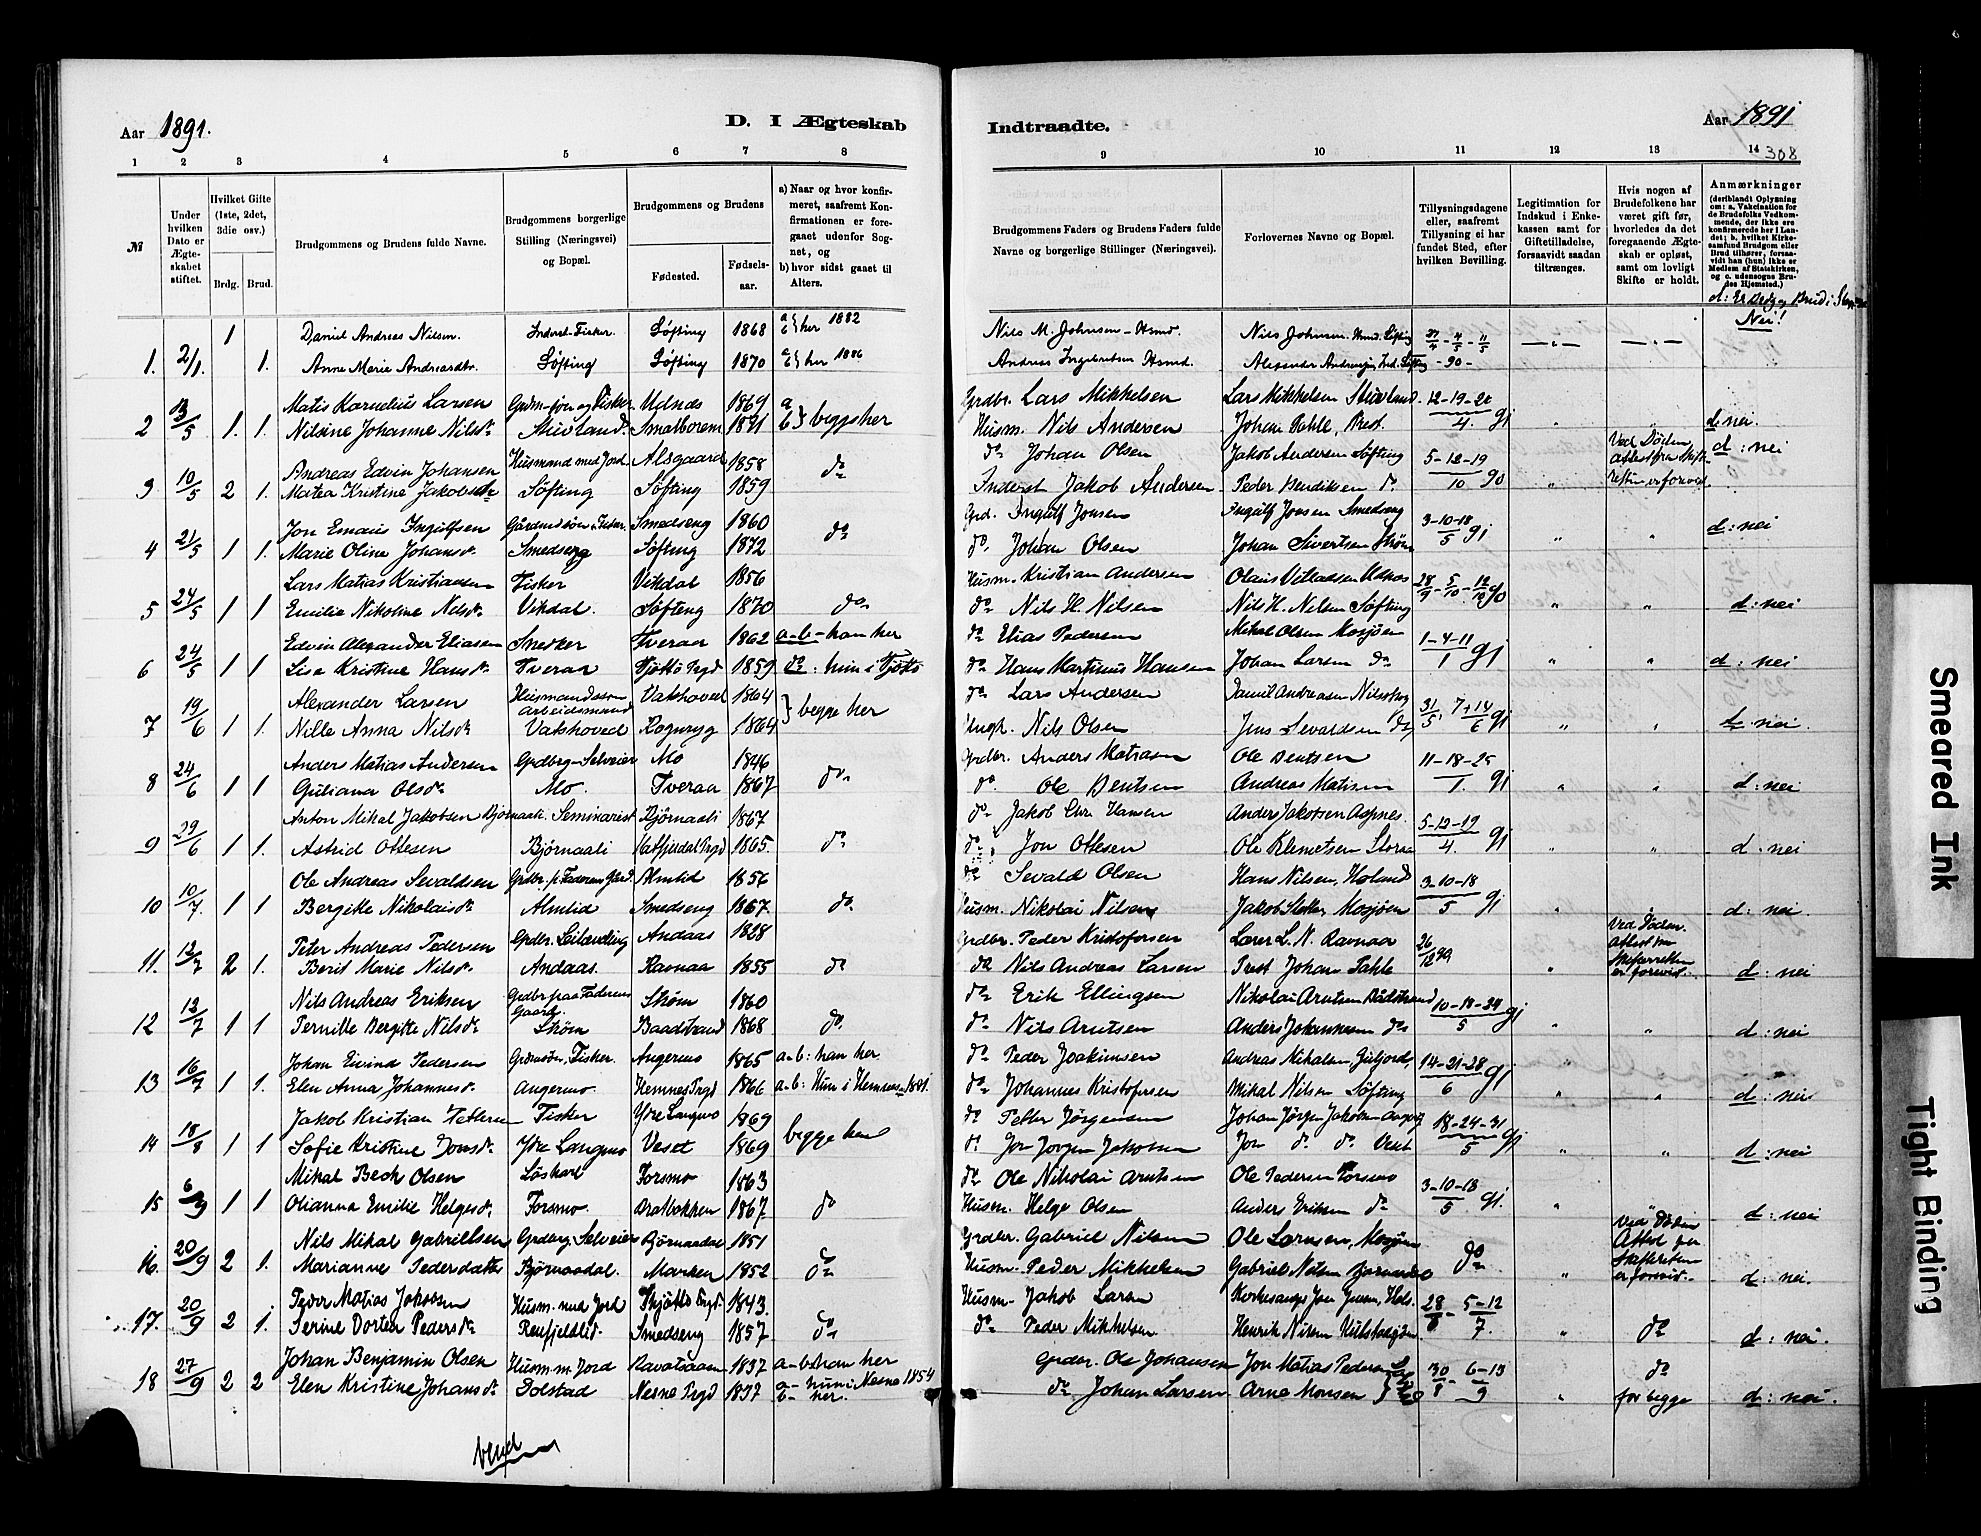 Aar 1891.
D. I Ægteskab
Indtraadte.
Aar 1891
308
1 2 3 4 5 6 7 8
9 10 11 12 13 14
№
Under hvilken Dato er Ægteskabet stiftet.
Hvilket Gifte (1ste, 2det, 3die osv.)
Brdg. Brud.
Brudgommens og Brudens fulde Navne.
Brudgommens borgerlige Stilling (Næringsvei) og Bopæl.
Brudgommens og Brudens
Fødested.
Fødselsaar.
a) Naar og hvor konfirmeret, saafremt Konfirmationen er foregaaet udenfor Sognet, og
b) hvor sidst gaaet til Alters.
Brudgommens Faders og Brudens Faders fulde Navne og borgerlige Stillinger (Næringsvei).
Forlovernes Navne og Bopæl.
Tillysningsdagene eller, saafremt Tillysning ei har fundet Sted, efter hvilken Bevilling.
Legitimation for Indskud i Enkekassen samt for Giftetilladelse, forsaavidt saadan tiltrænges.
Hvis nogen af Brudefolkene har været gift før, hvorledes da det foregaaende Ægteskab er opløst, samt om lovligt Skifte er holdt.
Anmærkninger
(deriblandt Oplysning om: a. Vakcination for de Brudefolks Vedkommende, der ikke ere konfirmerede her i Landet; b. hvilket Kirkesamfund Brudgom eller Brud tilhører, forsaavidt han (hun) ikke er Medlem af Statskirken, og c. udensogns Brudes Hjemsted.)
Nei!
1 Daniel Andreas Nilsen. Inderst-Fisker. Søfting 1868 a b} her 1882 Nils M. Johnsen - Hsmd. Nils Johnsen Søfting 27/4 - 4/5 - 11/5
1. 2/1. 1. Anne Marie Andreasdtr. Søfting Søfting 1870 a b} her 1886 Andreas Ingebretsen Hsmd. Alexander Andreasen Ind. Søfting - 90 -
Matis Kornelius Larsen Udnæs 1869 a Grdbr. Lars Mikkelsen Lars Mikkelsen 12-19-26
2 13/5 1. 1. Nilsine Johanne Nilsdr. Smalborem 1871 b} begge her Husm. Nils Andersen Johan Pahle, Prest. 4. 91 " " d: nei
Andreas Edvin Johansen Husmand med Jord Alsgaard 1858 do do Johan Olsen Jakob Andersen Søfting 5-12-19 Ved Døden,
3 10/5 2 1. Matea Kristine Jakobsdr Søfting Søfting 1859 Inderst Jakob Andersen Peder Bendiksen do 10 90 " d: nei
Jon Emaus Ingulfsen Smedseng 1860 do Grd. Ingulf Jonsen Ingulf Jonsen Smedseng 3-10-18
4 21/5 1 1. Marie Oline Johansdr Smedseng Søfting 1872 do. Johan Olsen Johan Sivertsen 5 91 " " d: nei
Lars Matias Kristiansen Fisker Vikdal 1856 Husm. Kristian Andersen 28/9 - 5/10 - 12/10 90
5 24/5 1 1 Emilie Nikoline Nilsdr. Vikdal. Søfting 1870 do do Nils H. Nilsen Nils H. Nilsen Søfting " " d: nei
Edvin Alexander Eliasen Snedker Tveraa 1862 a-b- han her do Elias Pedersen Mikal Olsen Mosjøen 1-4-11
6 24/5 1 1 Lise Kristine Hansdr. Tveraa Tjøttø Prgd 1859 do: hun i Tjøttø do Hans Martinus Hansen Johan Larsen do 1 91 " " d: nei
Alexander Larsen Husmandssøn Arbeidsmand Vatshoved 1864 } begge her do Lars Andersen 31/5, 7 + 14/6 91
7 19/6 1 1. Nille Anna Nilsdr Vatshoved 1864 Nils Olsen Jens Sevaldsen do " " d: nei.
Anders Matias Andersen Grdbrg-Selveier Mo 1846 Grdbr. Anders Matiasen Ole Bentsen 11-18-25
8 24/6 1 1 Guliana Olsdr. Mo. Tveraa 1867 do. do. Ole Bentsen Andreas Matisen 1. 91 " " d: nei
Anton Mikal Jakobsen Bjørnaali Seminarist Bjørnaali 1867 do. Jakob Chr. Hansen Anders Jakobsen 5-12-19
9 29/6 1 1. Astrid Ottesen Bjørnaali Hatfjeldal Prgd 1865. do Jon Ottesen Ole Klemetsen 4. 91 " " d: nei
Ole Andreas Sevaldsen Almlid 1856 do Sevald Olsen Hans Nilsen, Holand 3-10-18
10 10/7. 1 1 Bergitte Nikolaisdr. Almlid Smedseng 1867. do. Husm. Nikolai Nilsen Jakob Mosjøen 5 91 " d: nei.
Peter Andreas Pedersen Grdbr. Leilænding Andaas 1828 Grdbr. Peder Kristofersen Lærer L. N. Ravnaa 26/12 90 Ved Døden.
11. 12/7 2 1. Berit Marie Nilsdr. Andaas. Ravnaa 1855 do do Nils Andreas Larsen Prest Johan Pahle " d: nei
Nils Andreas Eriksen Grdbr paa Faderens Gaard Skøm 1860 do Erik Ellingsen Nikolai Arntsen Baadstrand 10-18-24
12 12/7 1 1 Pernille Bergitte Nilsdr Skøm Baadstrand 1868 do. do. Nils Arntsen Anders Johannesen do 5 91 " " d: nei
Johan Eivind Pedersen Grdmsøn, Fisker. Angermo 1865 a-b: han her. do Peder Joakimsen Andreas Mikalsen 14-21-28
13 16/7 1 1. Elen Anna Johannesdr. Angermo. Hemnes Prgd 1866 a-b: Hun i Hemnes 1881. do Johannes Kristofersen Mikal Nilsen Søfting 6 91 " " d: nei
Jakob Kristian Pettersen Fisker Ytre Langmo 1869 begge her do Petter Jørgensen Johan Jørgen Jakobsen 18-24-31
14 18/8 1 1 Sofie Kristine Jonsdr. Ytre Langmo Veset 1869 do. Jon Jørgen Jakobsen Jon do. do. Veset 5 91 " " d: nei
Mikal Beck Olsen Løskarl Forsmo 1863 do Ole Nikolai Arntsen Ole Pedersen Forsmo 3-10-18
15 6/9 1 1 Olianna Emilie Helgesdr. Forsmo. Bratbakken 1867. do Husm. Helge Olsen Anders Eriksen do 5 91. " " d: nei
Nils Mikal Gabrielsen Grdbrg. Selveier Bjørnaadal 1851 Grdbr. Gabriel Nilsen Ole Larsen, Mosjøen do Ved Døden
16. 20/9 2 1. Marianne Pedersdatter Bjørnaadal. Marken 1852 do Husm. Peder Mikkelsen Gabriel Nilsen " d: nei.
Peder Matias Jakobsen Husm. med Jord Tjøttø Prgd. 1843. Husm. Jakob Larsen 28/8 - 5-12
17. 20/9 2 1. Serine Dortea Pedersdr. Renfjeldlid. Smedseng 1857 do do Peder Mikkelsen 7. " do d: nei.
Johan Benjamin Olsen Husm. m. Jord 1837 a-b han her Grdbr. Ole Johansen Jon Matias Pedersen 30/8 - 6-13 do
18 27/9 2 2 Elen Kristine Johansdr. Dolstad Nesna Prgd 1837 a- hun i Nesna 1854 b- her. do Johan Larsen Arne Monsen 9 " for begge d: nei.
Vend
Smeared Ink
Tight Binding